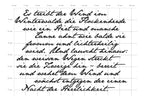 Es treibt der Wind im
Winterwalde die Flockenherde
wie ein Hirt und manche
Tanne ahnt wie balde sie
fromm und lichterheilig
wird. Und lauscht hinaus:
den weissen Wegen streckt
sie die Zweige hin - bereit
und wehrt dem Wind und
wächst entgegen der einen
Nacht der Herrlichkeit.